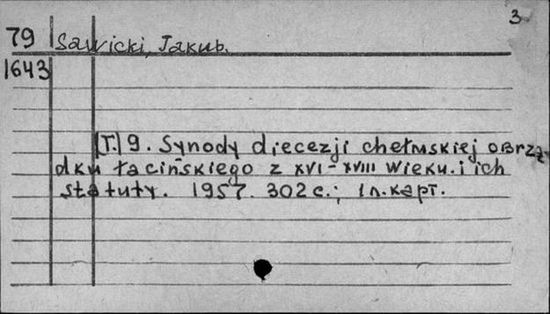 3
79 Sawicki, Jakub.
1643
[T.] 9. Synody diecezji chełmskiej obrzą-
dku łacińskiego z XVI-XVIII wieku i ich
statuty. 1957. 302 с.; 1 л. карт.